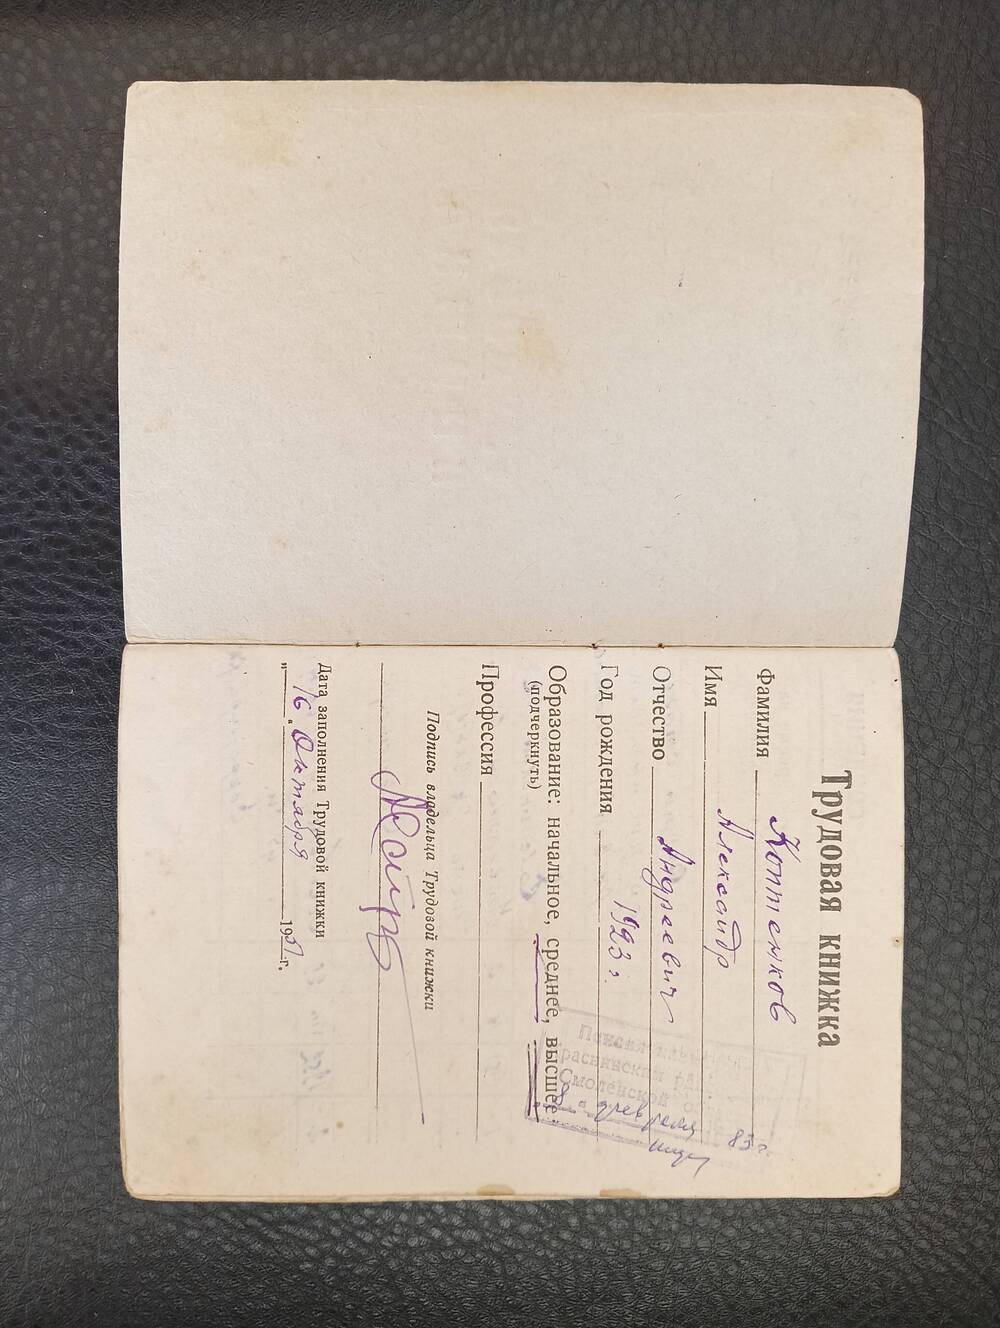 Трудовая книжка
Фамилия Коптенков
Имя Александр
Отчество Андреевич
Год рождения 1923 г.
Образование: начальное, среднее, высшее
(подчеркнуть)
Профессия
Подпись владельца Трудовой книжки
Дата заполнения Трудовой книжки
„ 16 “ Октября 1951 г.
Смоленской